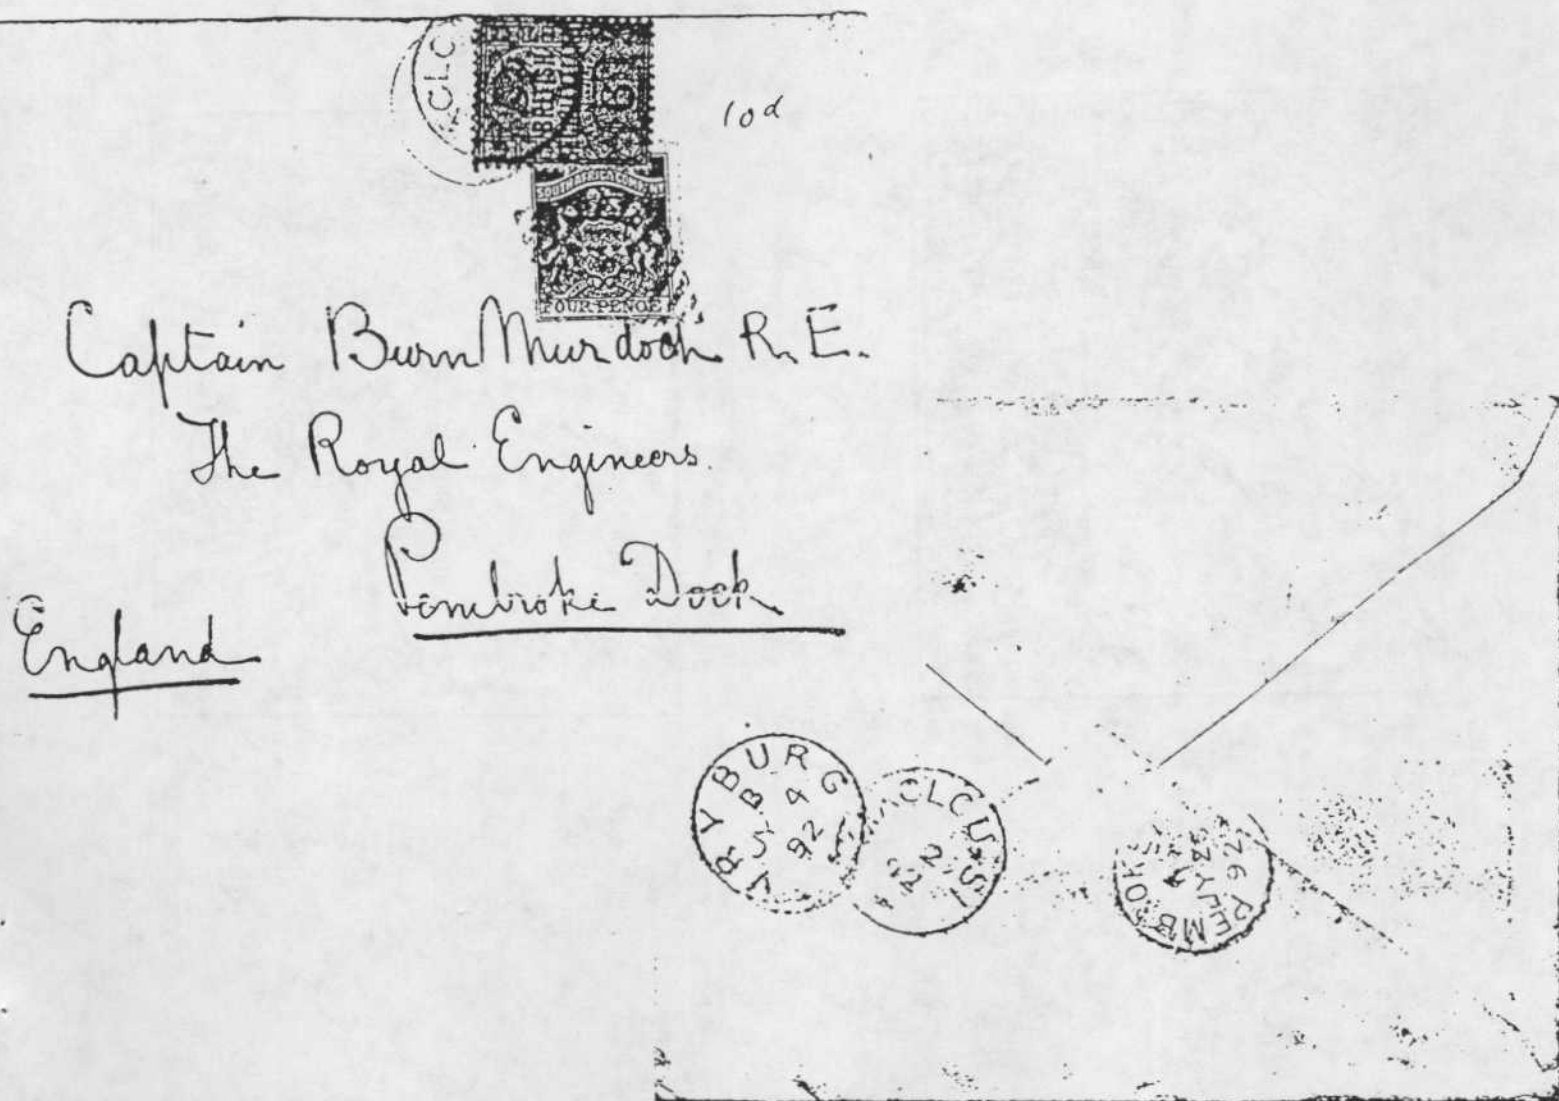 CLC
BRITISH
6
10d
SOUTH AFRICA COMPANY
FOUR PENCE
Captain Burn Murdoch R.E.
The Royal Engineers.
Pembroke Dock
England
VRYBURG
B
4
92
CLCUTSI
2
PEMBROKE
JY 23
92